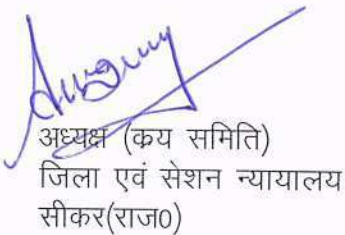 अध्यक्ष (क्रय समिति)
जिला एवं सेशन न्यायालय
सीकर(राज0)